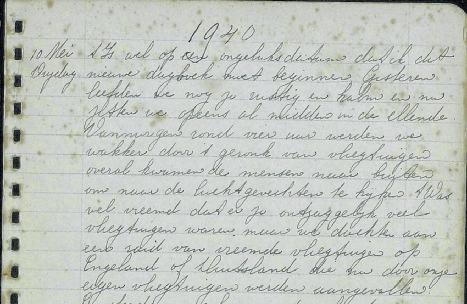 1940
10 Mei 't Is wel op een ongeluksdatum dat ik dit
Vrijdag nieuwe dagboek moet beginnen. Gisteren
leefden we nog zo rustig en kalm en nu
zitten we opeens al midden in de ellende.
Vanmorgen rond vier uur werden we
wakker door 't geronk van vliegtuigen
overal kwamen de mensen naar buiten
om naar de luchtgevechten te kijken. 't Was
wel vreemd dat er zo ontzaggelijk veel
vliegtuigen waren, maar we dachten aan
een raid van vreemde vliegtuigen op
Engeland of Duitsland die nu door onze
eigen vliegtuigen werden aangevallen